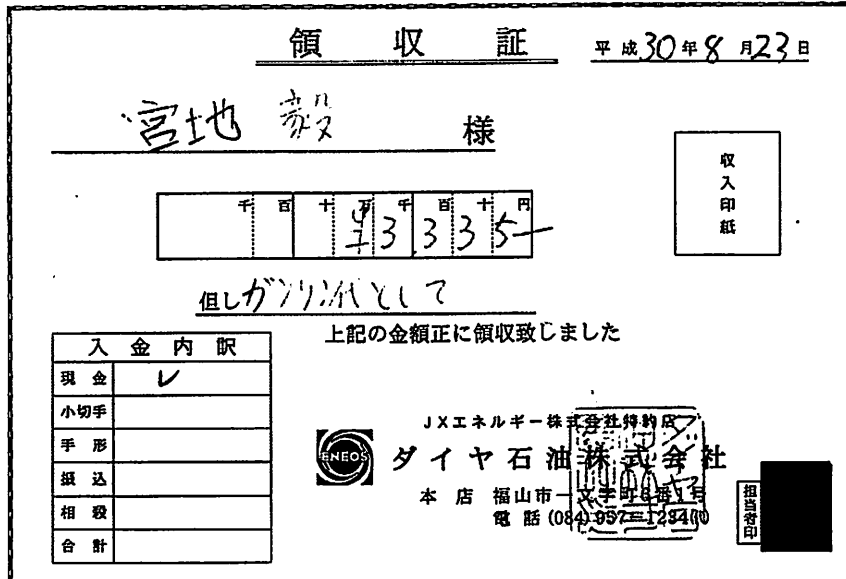 領収証
平成30年8月23日
宮地 毅 様
収入印紙
千百十万千百十円
¥3,335-
但しガソリン代として
上記の金額正に領収致しました
入金内訳
現金 レ
小切手
手形
振込
相殺
合計
JXエネルギー株式会社特約店
ENEOS
ダイヤ石油株式会社
本店 福山市一文字町6番1号
電話(084)957-1234
担当者印